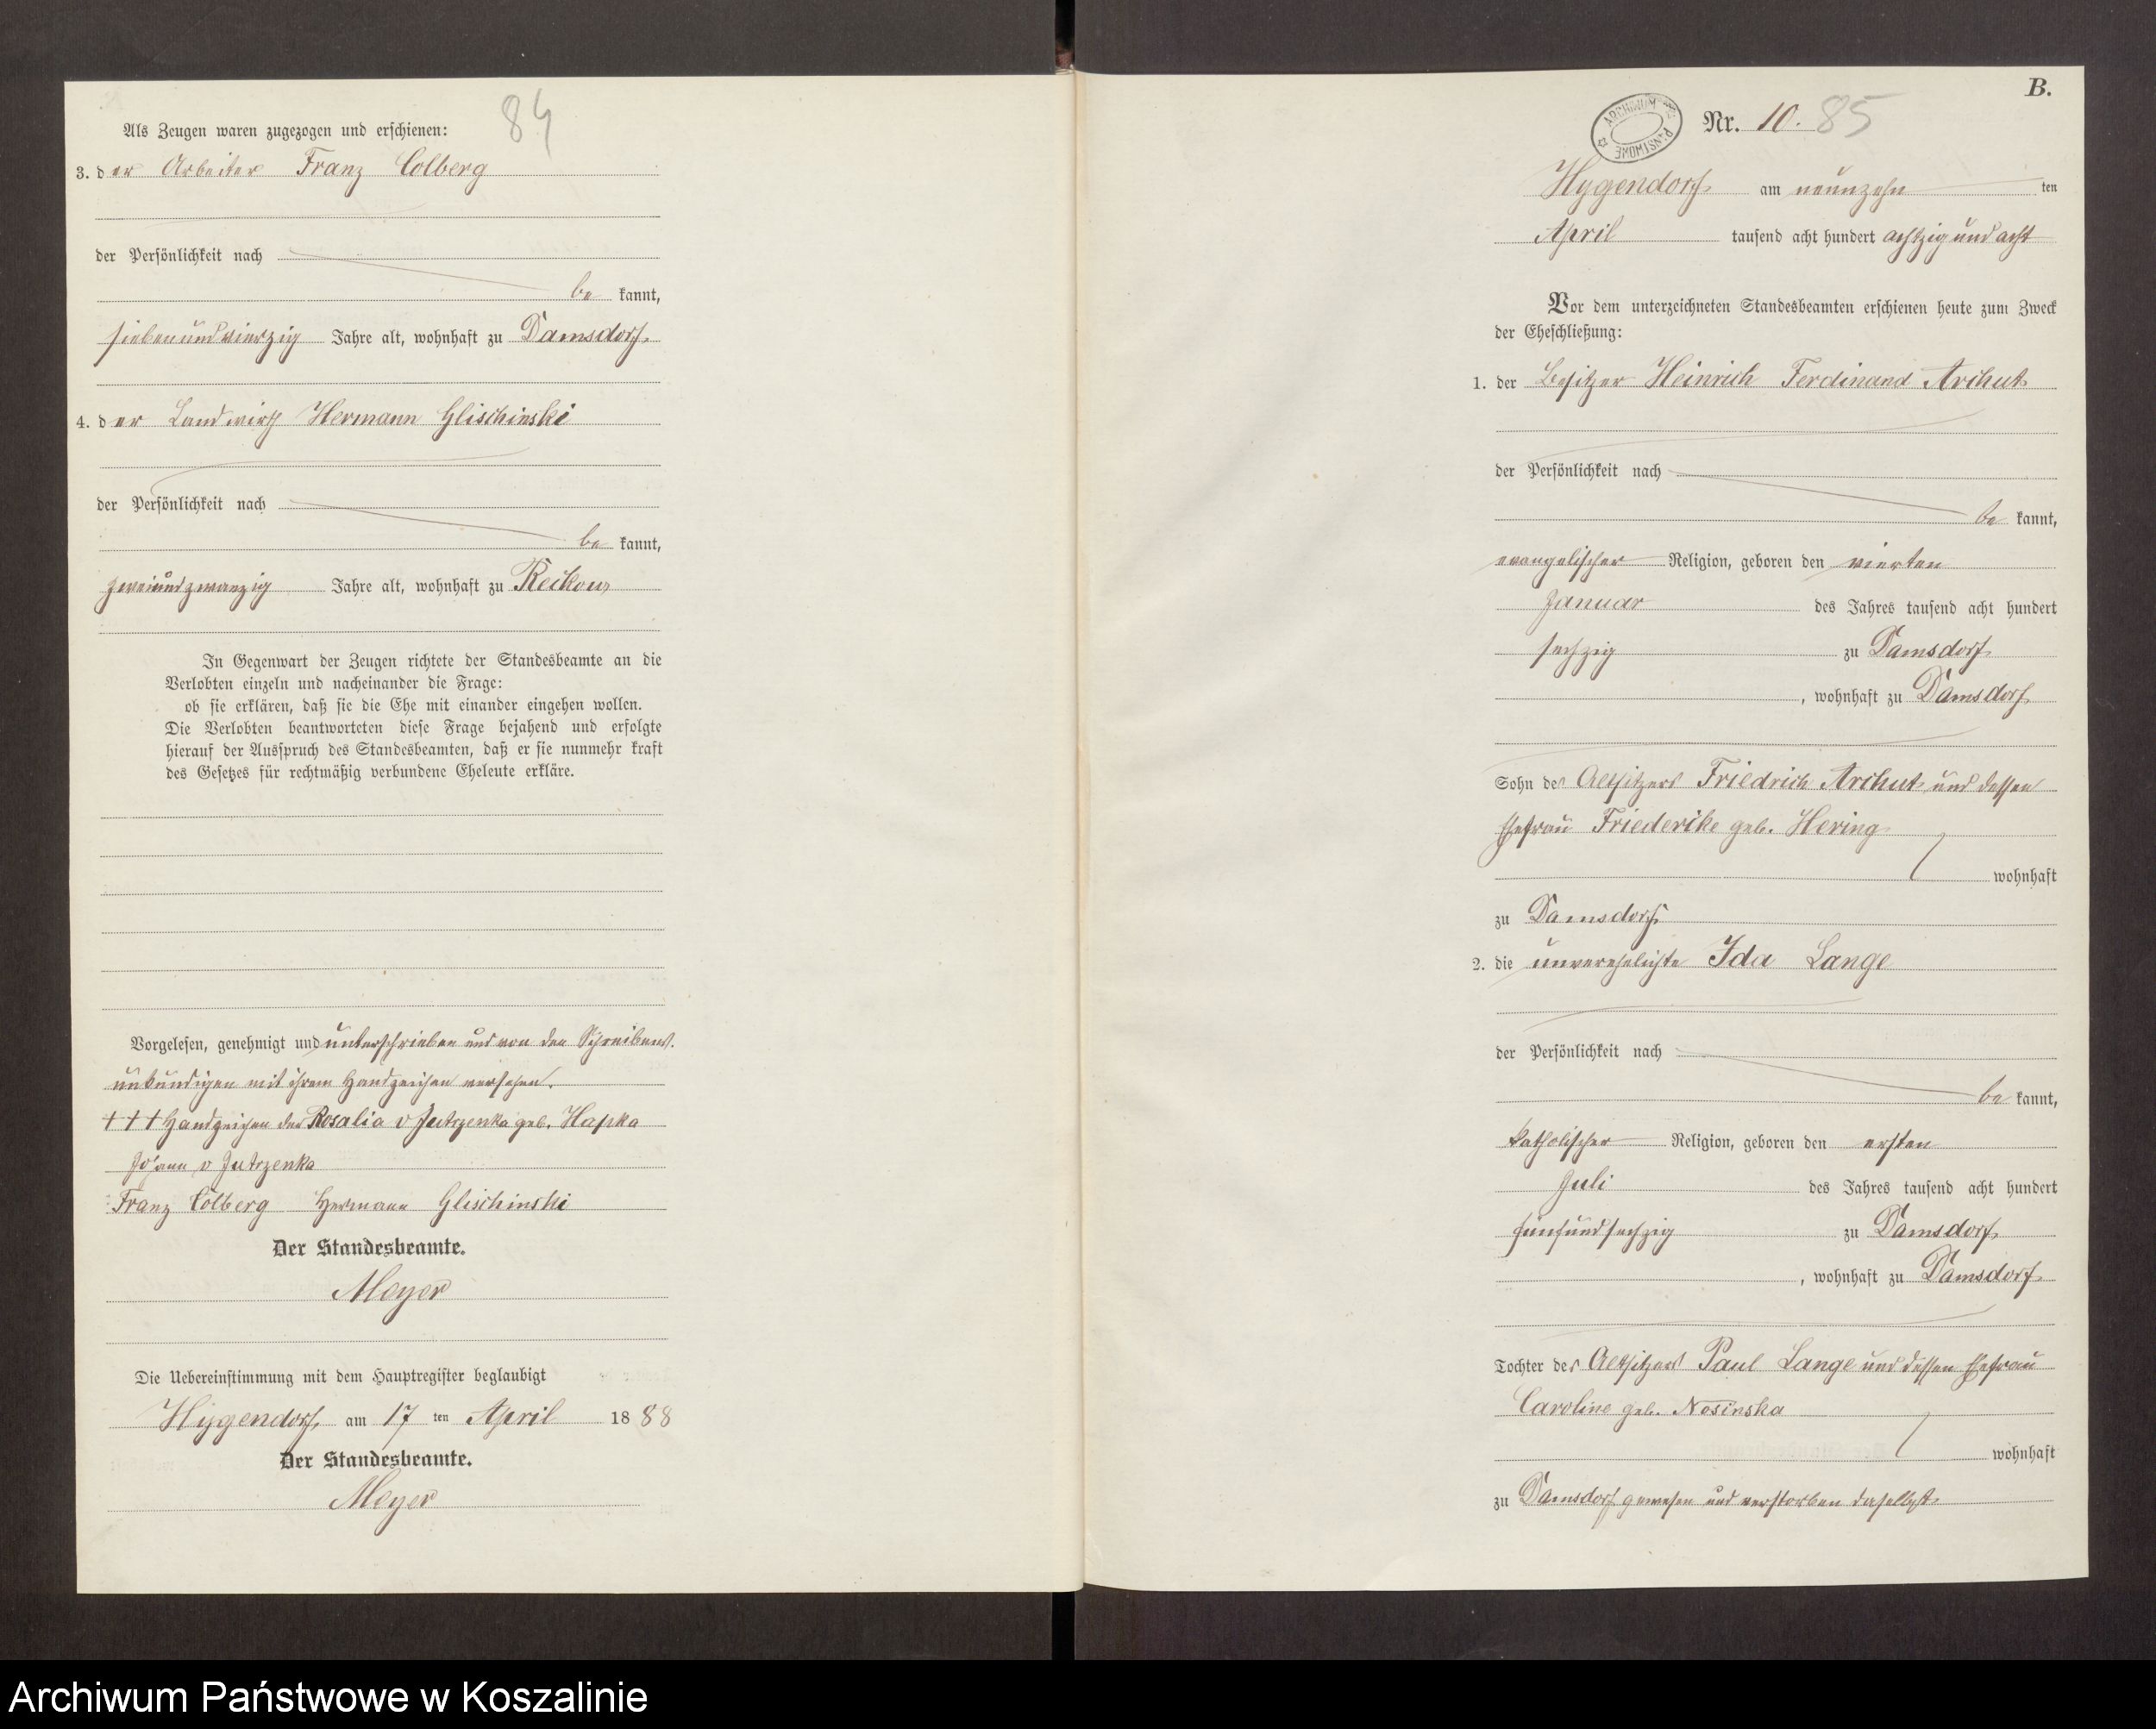 84
Als Zeugen waren zugezogen und erschienen:
3. der Arbeiter Franz Colberg
der Persönlichkeit nach
be kannt,
siebenundvierzig Jahre alt, wohnhaft zu Damsdorf
4. der Landwirth Hermann Glischinski
der Persönlichkeit nach
be kannt,
zweiundzwanzig Jahre alt, wohnhaft zu Reckow
In Gegenwart der Zeugen richtete der Standesbeamte an die
Verlobten einzeln und nacheinander die Frage:
ob sie erklären, daß sie die Ehe mit einander eingehen wollen.
Die Verlobten beantworteten diese Frage bejahend und erfolgte
hierauf der Ausspruch des Standesbeamten, daß er sie nunmehr kraft
des Gesetzes für rechtmäßig verbundene Eheleute erkläre.
Vorgelesen, genehmigt und unterschrieben und von den Schreibens-
unkundigen mit ihrem Handzeichen versehen.
+++ Handzeichen der Rosalia v Jutrzenka geb. Hapka
Johann v Jutrzenka
Franz Colberg Hermann Glischinski
Der Standesbeamte.
Meyer
Die Uebereinstimmung mit dem Hauptregister beglaubigt
Hygendorf, am 17 ten April 1888
Der Standesbeamte.
Meyer
B.
Nr. 10. 85
Hygendorf am neunzehn ten
April tausend acht hundert achtzig und acht
Vor dem unterzeichneten Standesbeamten erschienen heute zum Zweck
der Eheschließung:
1. der Besitzer Heinrich Ferdinand Archut
der Persönlichkeit nach
be kannt,
evangelischer Religion, geboren den vierten
Januar des Jahres tausend acht hundert
sechzig zu Damsdorf
, wohnhaft zu Damsdorf
Sohn des Altsitzers Friedrich Archut und dessen
Ehefrau Friederike geb. Hering
wohnhaft
zu Damsdorf
2. die unverehelichte Ida Lange
der Persönlichkeit nach
be kannt,
katholischer Religion, geboren den ersten
Juli des Jahres tausend acht hundert
fünfundsechzig zu Damsdorf
, wohnhaft zu Damsdorf
Tochter des Altsitzers Paul Lange und dessen Ehefrau
Caroline geb. Nosinska
wohnhaft
zu Damsdorf gewesen und verstorben daselbst
Archiwum Państwowe w Koszalinie